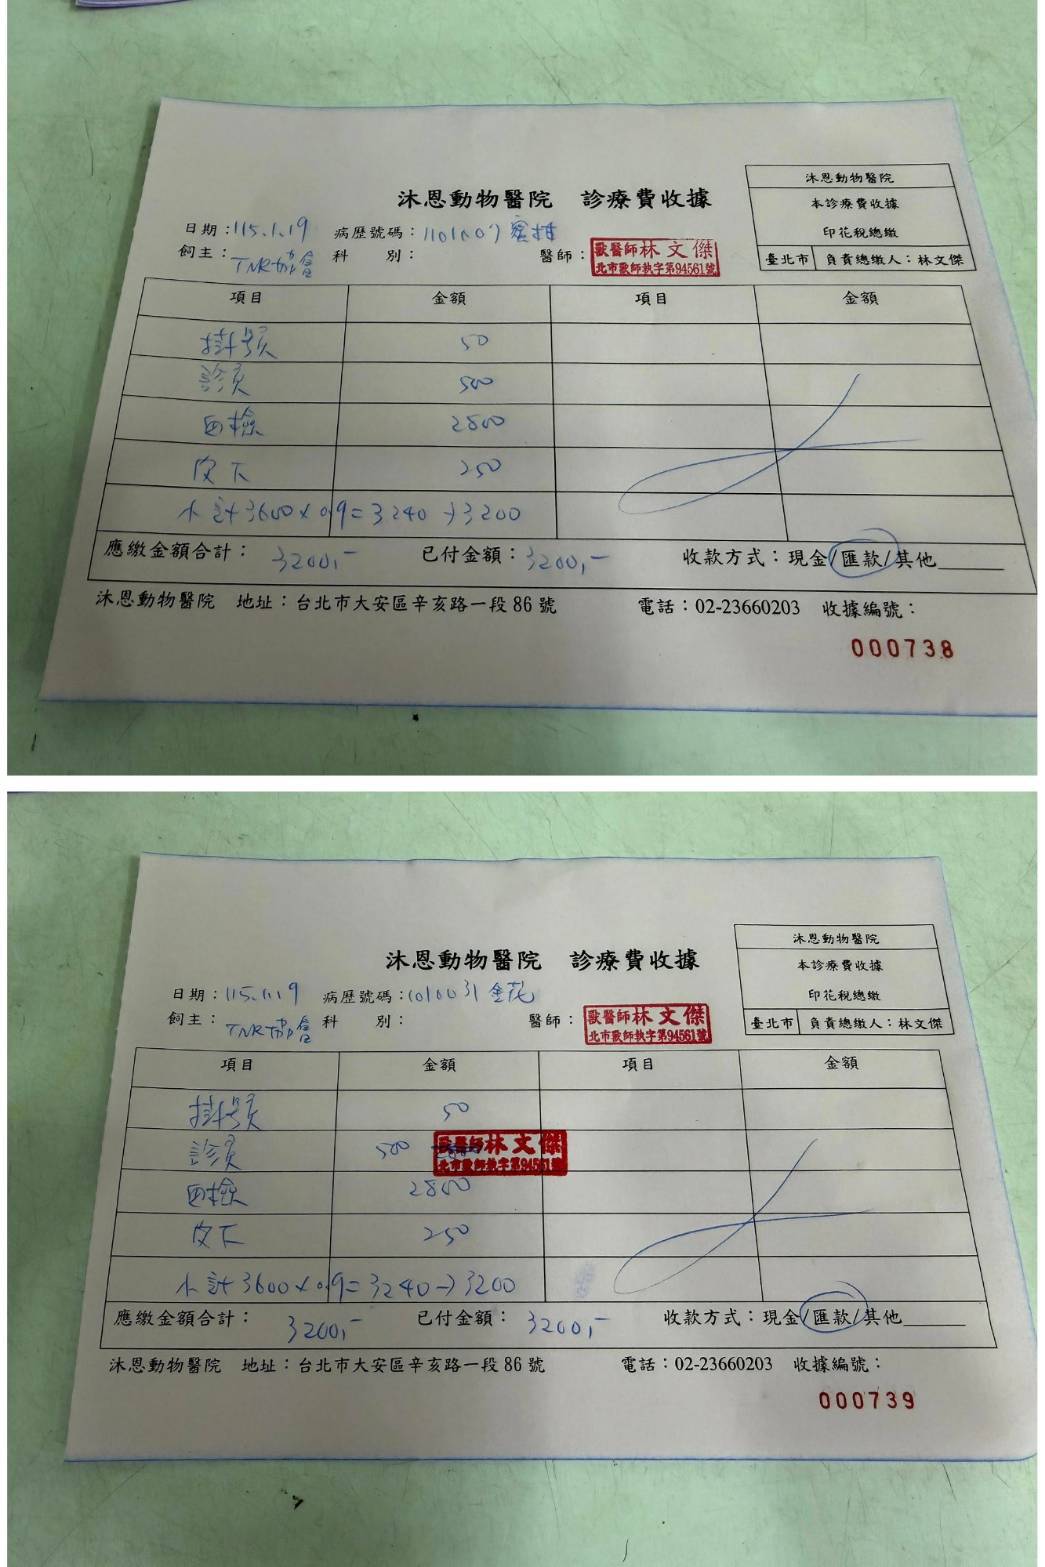 沐恩動物醫院 診療費收據
沐恩動物醫院
本診療費收據
印花稅總繳
臺北市 負責總繳人：林文傑
日期：115.1.19 病歷號碼：1101007 蜜柑
飼主：TNR協會 科 別： 醫師：獸醫師林文傑
北市獸師執字第94561號
項目 金額 項目 金額
掛號 50
診療 500
血檢 2800
皮下 250
小計3600×0.9=3240→3200
應繳金額合計：3200,- 已付金額：3200,- 收款方式：現金/匯款/其他
沐恩動物醫院 地址：台北市大安區辛亥路一段86號 電話：02-23660203 收據編號：
000738
沐恩動物醫院 診療費收據
沐恩動物醫院
本診療費收據
印花稅總繳
臺北市 負責總繳人：林文傑
日期：115.1.19 病歷號碼：1010031 金花
飼主：TNR協會 科 別： 醫師：獸醫師林文傑
北市獸師執字第94561號
項目 金額 項目 金額
掛號 50
診療 500 獸醫師林文傑
北市獸師執字第94561號
血檢 2800
皮下 250
小計3600×0.9=3240→3200
應繳金額合計：3200,- 已付金額：3200,- 收款方式：現金/匯款/其他
沐恩動物醫院 地址：台北市大安區辛亥路一段86號 電話：02-23660203 收據編號：
000739